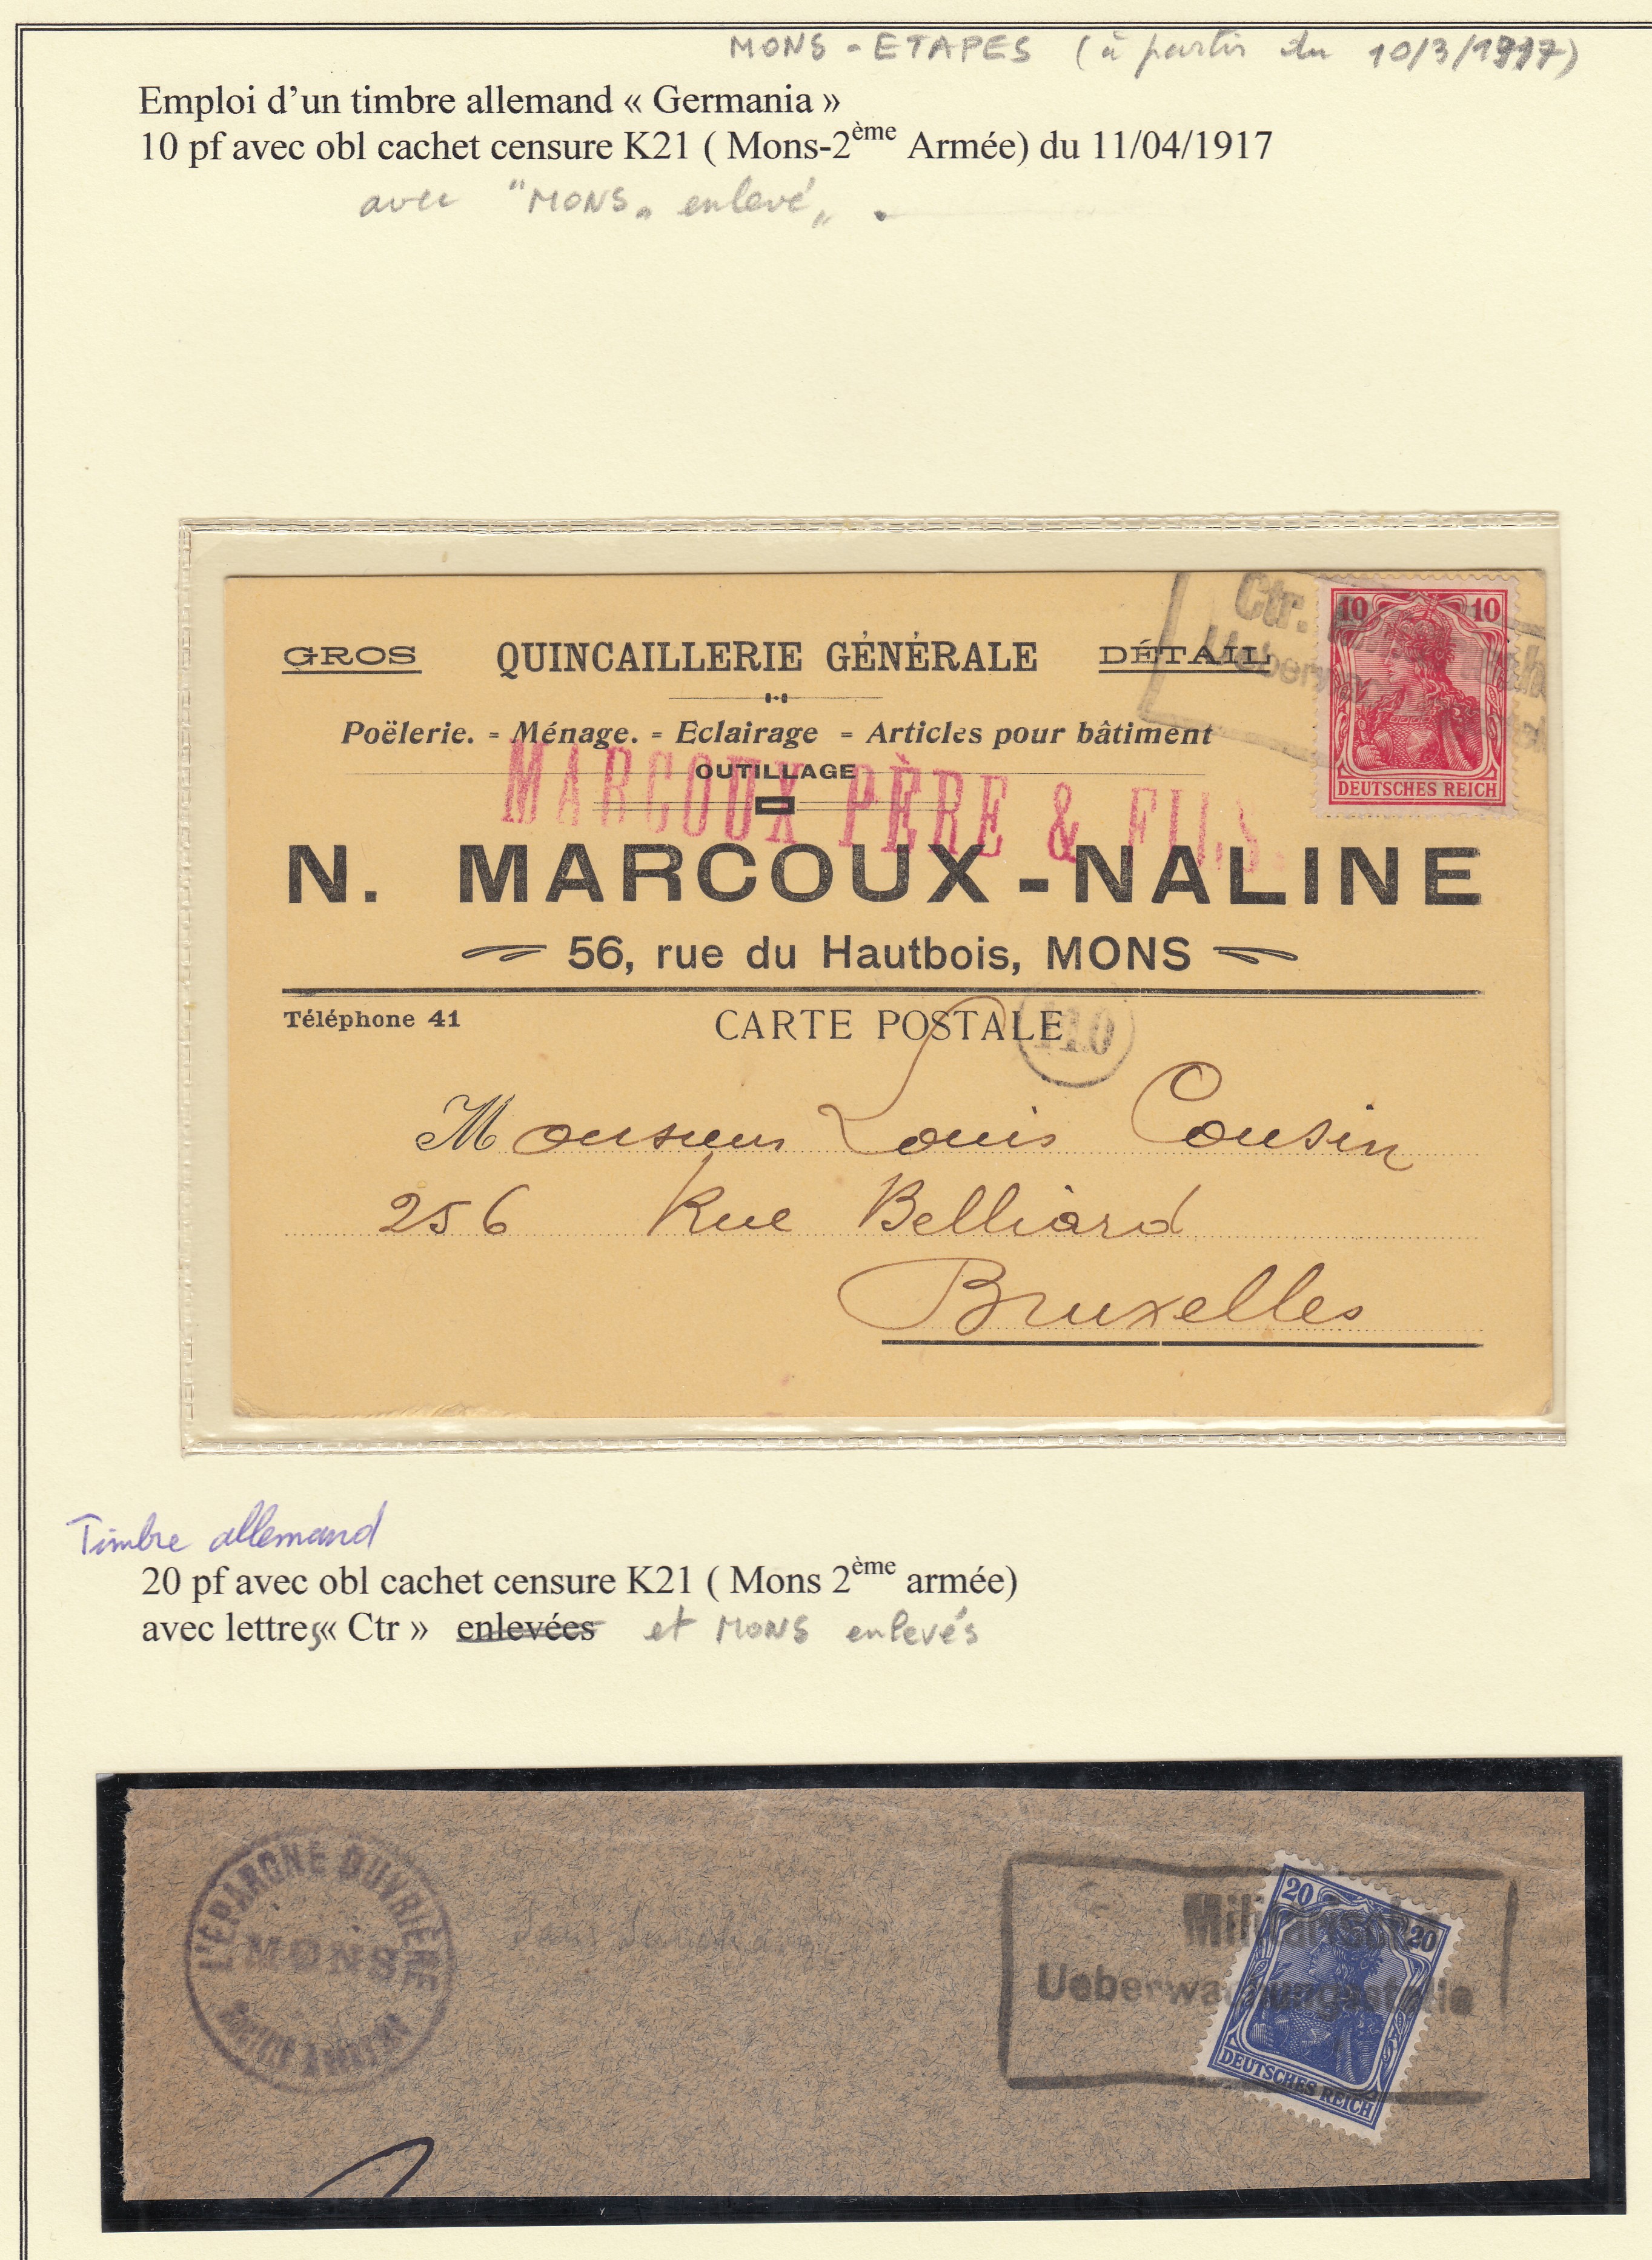 MONS - ETAPES (à partir du 10/3/1917)
Emploi d'un timbre allemand « Germania »
10 pf avec obl cachet censure K21 ( Mons-2ème Armée) du 11/04/1917
avec "MONS" enlevé".
Ctr.
Ueber
10 10
DEUTSCHES REICH
GROS QUINCAILLERIE GÉNÉRALE DÉTAIL
Poëlerie. = Ménage. = Eclairage = Articles pour bâtiment
OUTILLAGE
MARCOUX PÈRE & FILS
N. MARCOUX-NALINE
56, rue du Hautbois, MONS
Téléphone 41 CARTE POSTALE
110
Monsieur Louis Cousin
256 Rue Belliard
Bruxelles
Timbre allemand
20 pf avec obl cachet censure K21 ( Mons 2ème armée)
avec lettres « Ctr » enlevées et MONS enlevés
L'EPARGNE OUVRIÈRE
MONS
Militärische
Ueberwachungsstelle
20 20
DEUTSCHES REICH